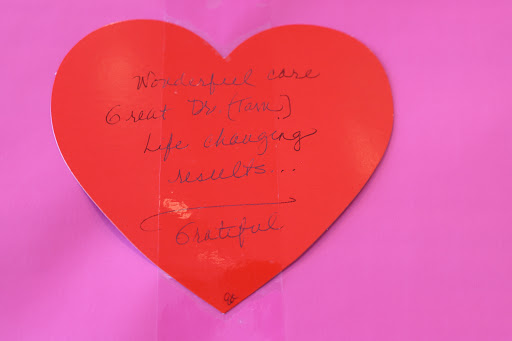 Wonderful care
Great Dr. [Tarn]
Life changing
results...
Grateful